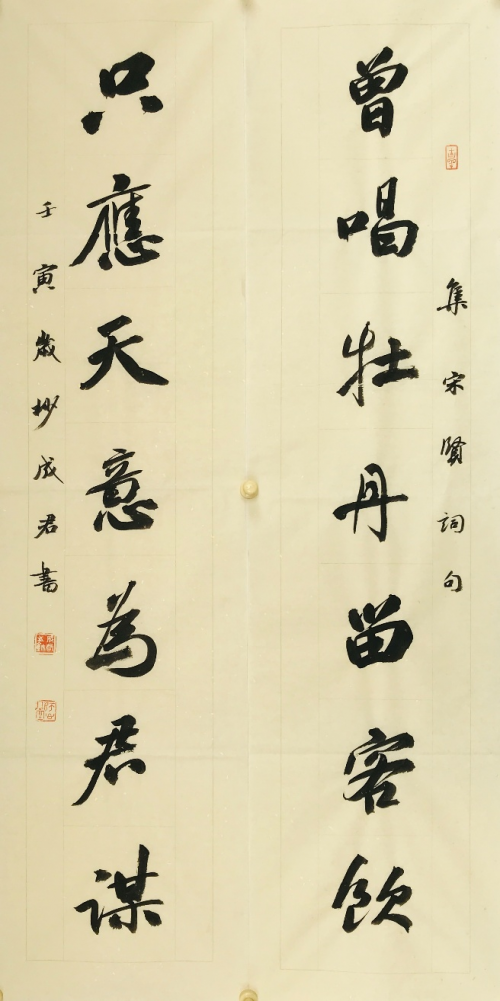 集宋賢詞句
曾唱牡丹留客飲
只應天意為君謀
壬寅歲杪成君書